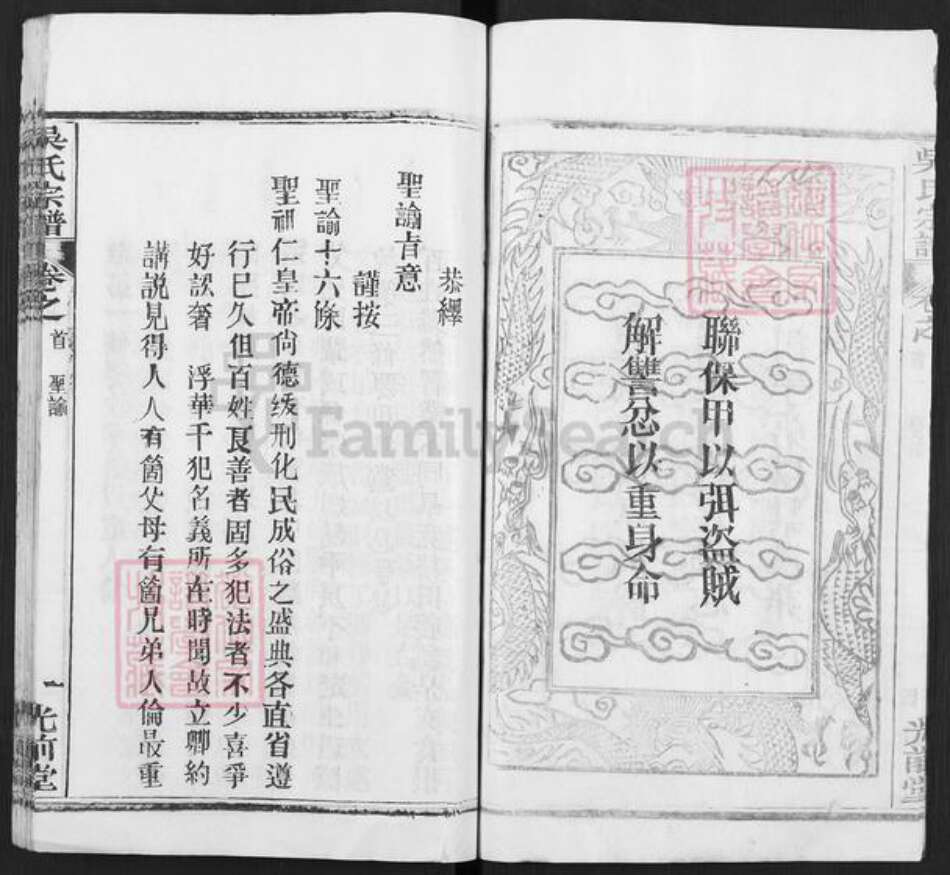 聯保甲以弭盜賊
解讐忿以重身命
光前堂
恭繹
聖諭旨意
謹按
聖諭十六條
聖祖仁皇帝尚德緩刑化民成俗之盛典各直省遵
行巳久但百姓良善者固多犯法者不少喜爭
好訟奢 浮華干犯名義所在時聞故立鄉約
講説見得人人有箇父母有箇兄弟人倫最重
吳氏宗譜 卷之首 聖諭 一 光前堂
FamilySearch